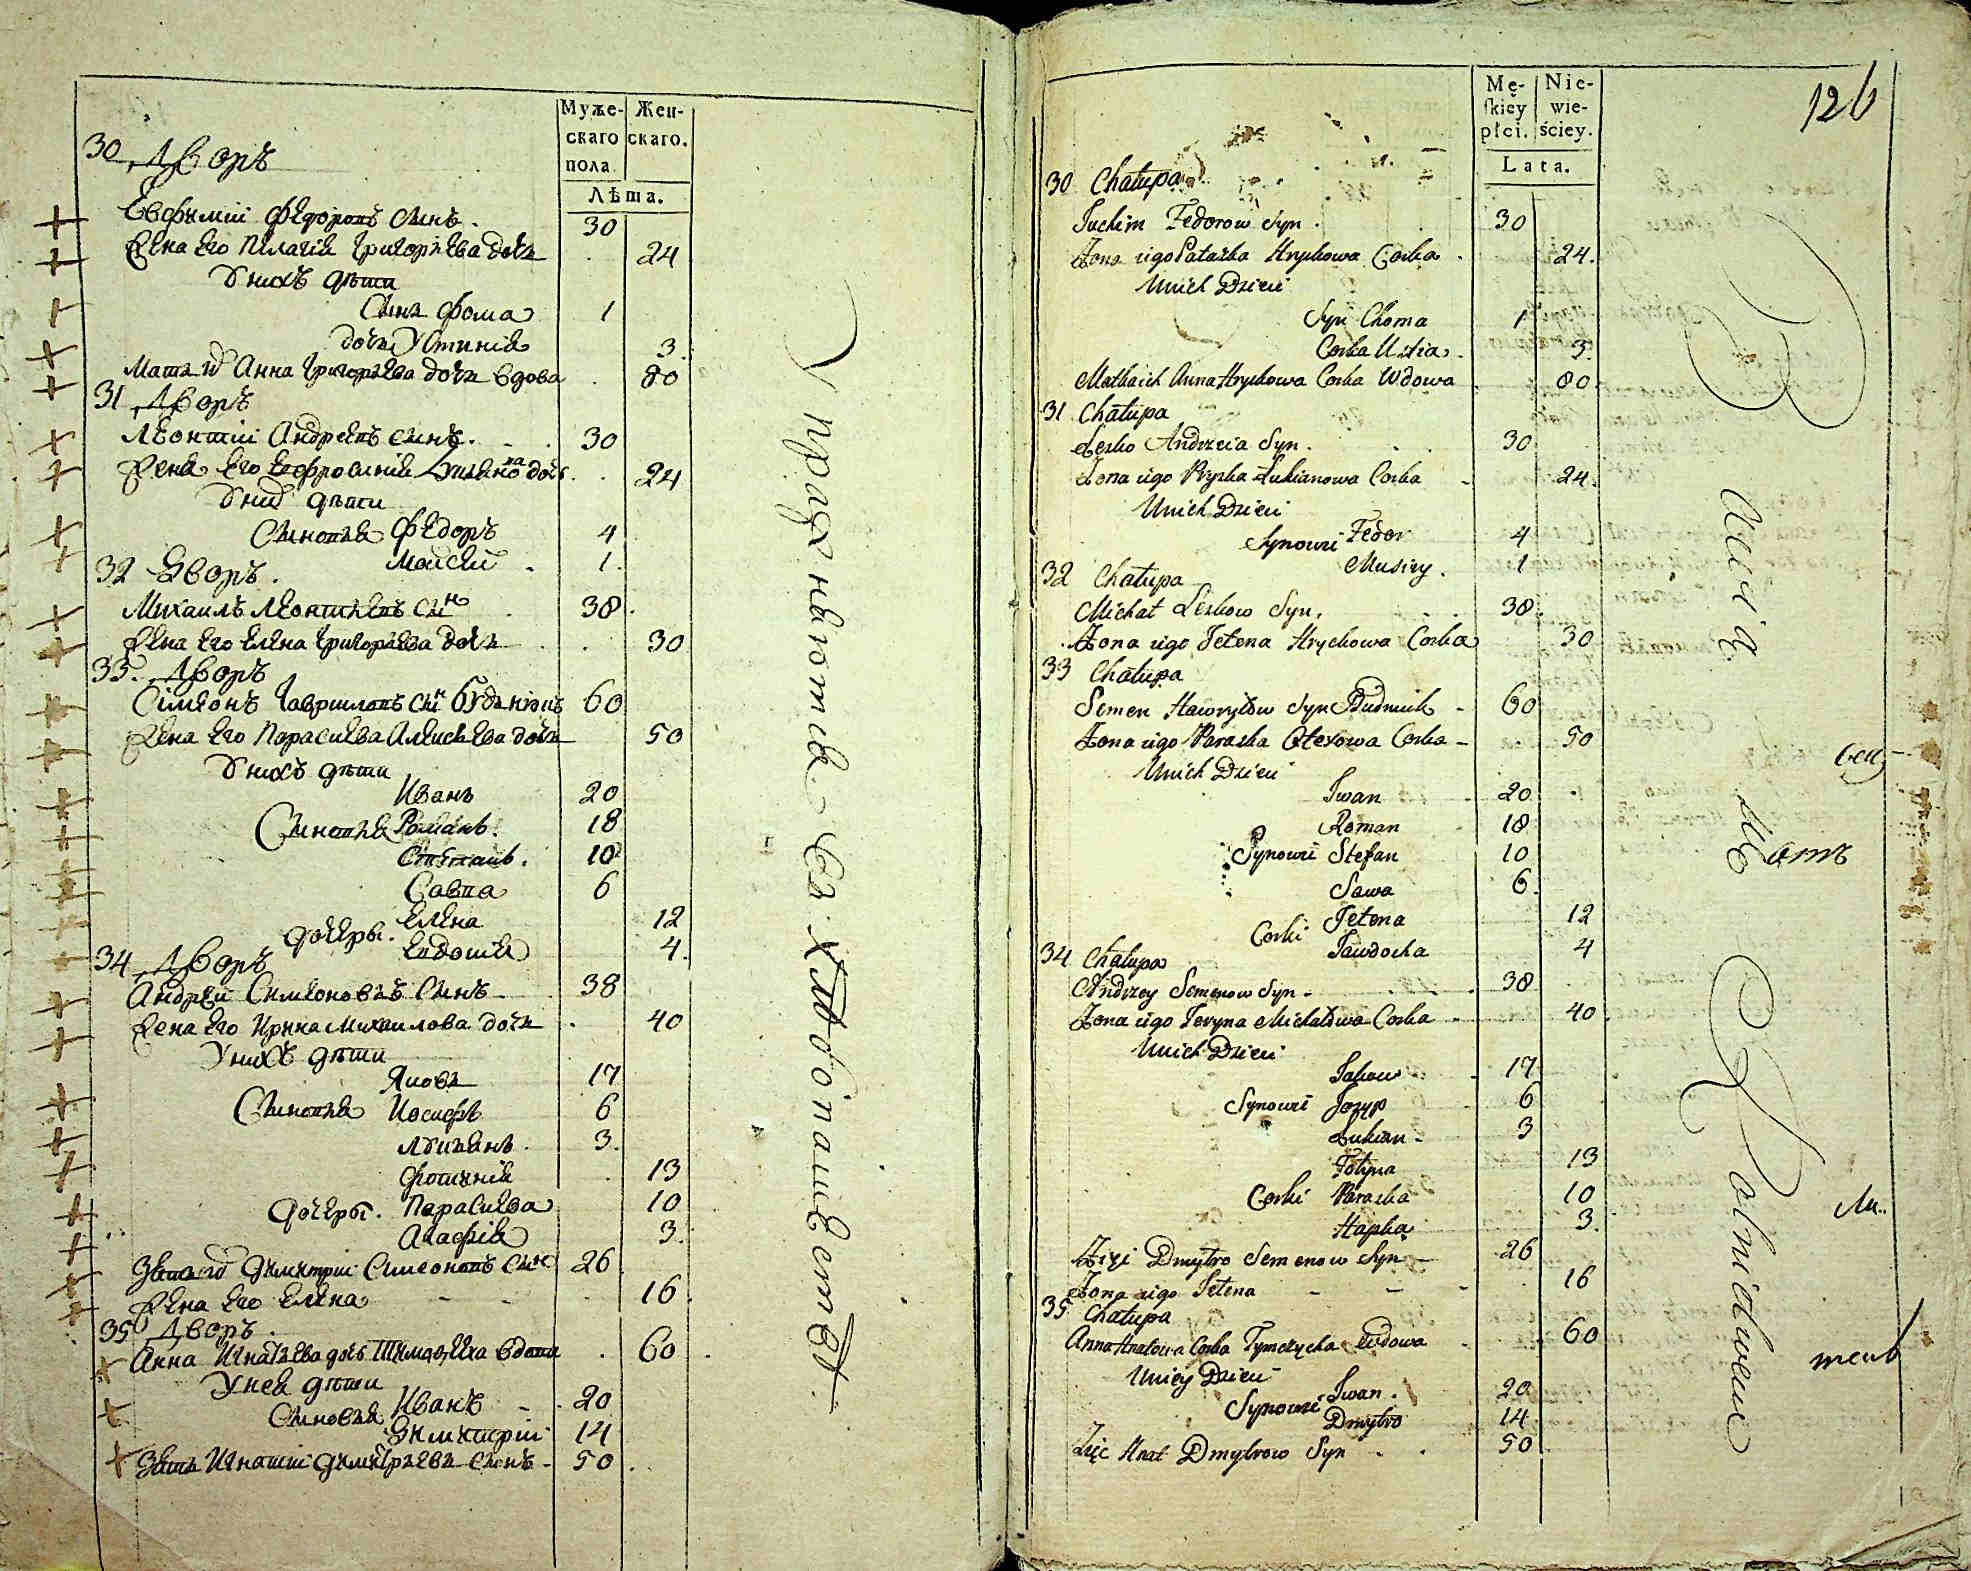 Муже-
скаго
пола
Жен-
скаго.
Лѣта.
30 Дворъ
Евфимій Федоровъ сынъ. 30
Жена его Пелагія Григорьева дочь 24
У нихъ дѣти
Сынъ Фома 1
дочь Устинія 3.
Мать их Анна Григорьева дочь вдова 80
31 Дворъ
Леонтій Андреевъ сынъ. 30
Жена его Ефросинія Лукиянова дочь 24
У них дѣти
Сыновья Федоръ 4
Моисей 1.
32 Дворъ.
Михаилъ Леонтьевъ сын 38.
Жена его Елена Григорьева дочь 30
33. Дворъ
Симеонъ Гавриловъ сын Будникъ 60
Жена его Парасиева Алексеева дочь 50
У нихъ дѣти
Иванъ 20
Сыновья Романъ. 18
Стефанъ. 10
Савва 6
Елена 12
дочеры. Евдокия 4.
34 Дворъ
Андрей Симеоновъ сынъ 38
Жена его Ирина Михаилова дочь 40
У нихъ дѣти
Яковъ 17
Сыновья Иосифъ 6
Лукиянъ. 3.
Фотинія 13
дочеры. Парасиева 10
Агафія 3.
Зять их Димитрій Симеоновъ сын 26
Жена его Елена 16.
35 Дворъ.
Анна Игнатьева дочь вдова 60.
У неи дѣти
Сыновья Иванъ 20
Димитрій 14
Зять Игнатій Димитріевъ сынъ 50.
Упражняются въ хлебопашествѣ.
126
Mę-
skiey
płci.
Nie-
wie-
ściey.
Lata.
30 Chałupa
Juchim Fedorow Syn. 30
Żona iego Pałażka Hryhowa Corka. 24.
Unich Dzieci
Syn Choma 1
Corka Ustia. 3.
Matka ich Anna Hryhowa Corka Wdowa 80.
31 Chałupa
Lesko Andrzeia Syn. 30
Żona iego Pryska Łukianowa Corka 24.
Unich Dzieci
Synowie Fedor 4
Musiey. 1
32 Chałupa
Michał Leskow Syn. 38.
Żona iego Jełena Hryckowa Corka 30
33 Chałupa
Semen Hawryłow Syn Budnik 60
Żona iego Paraska Olexowa Corka 50
Unich Dzieci
Iwan 20
Roman 18
Synowie Stefan 10
Sawa 6.
Corki Jełena 12
Jawdocha 4
34 Chałupa
Andrzey Semenow Syn. 38
Żona iego Jeryna Michałowa Corka 40.
Unich Dzieci
Jakow 17
Synowie Jozyp 6
Łukian 3
Fotyna 13
Corki Paraska 10
Hapka 3.
Zięć Dmytro Semenow Syn 26
Żona iego Jełena 16
35 Chałupa
Anna Hnatowa Corka Tymczycha Wdowa 60
Uniey Dzieci
Synowie Iwan. 20
Dmytro 14
Zięć Hnat Dmytrow Syn 50
Bawią się Rolnictwem